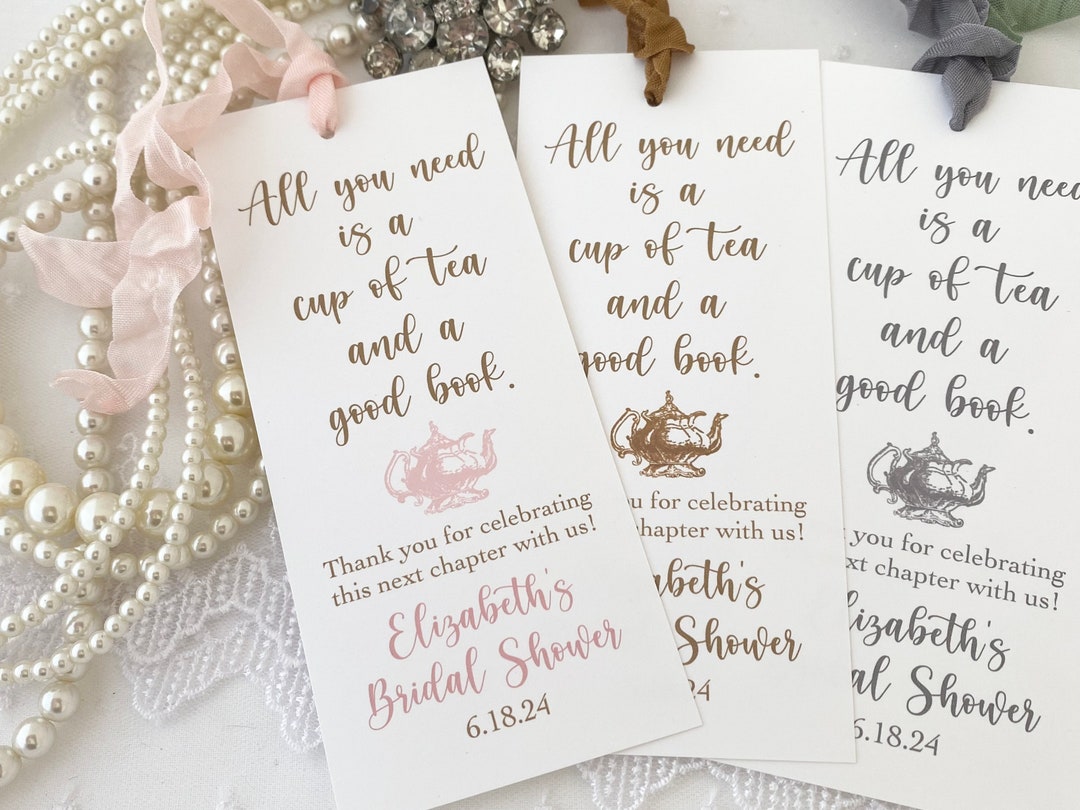 All you need
is a
cup of tea
and a
good book.
Thank you for celebrating
this next chapter with us!
Elizabeth's
Bridal Shower
6.18.24
All you need
is a
cup of tea
and a
good book.
u for celebrating
chapter with us!
abeth's
Shower
24
All you need
is a
cup of tea
and a
good book.
you for celebrating
xt chapter with us!
lizabeth's
al Shower
6.18.24